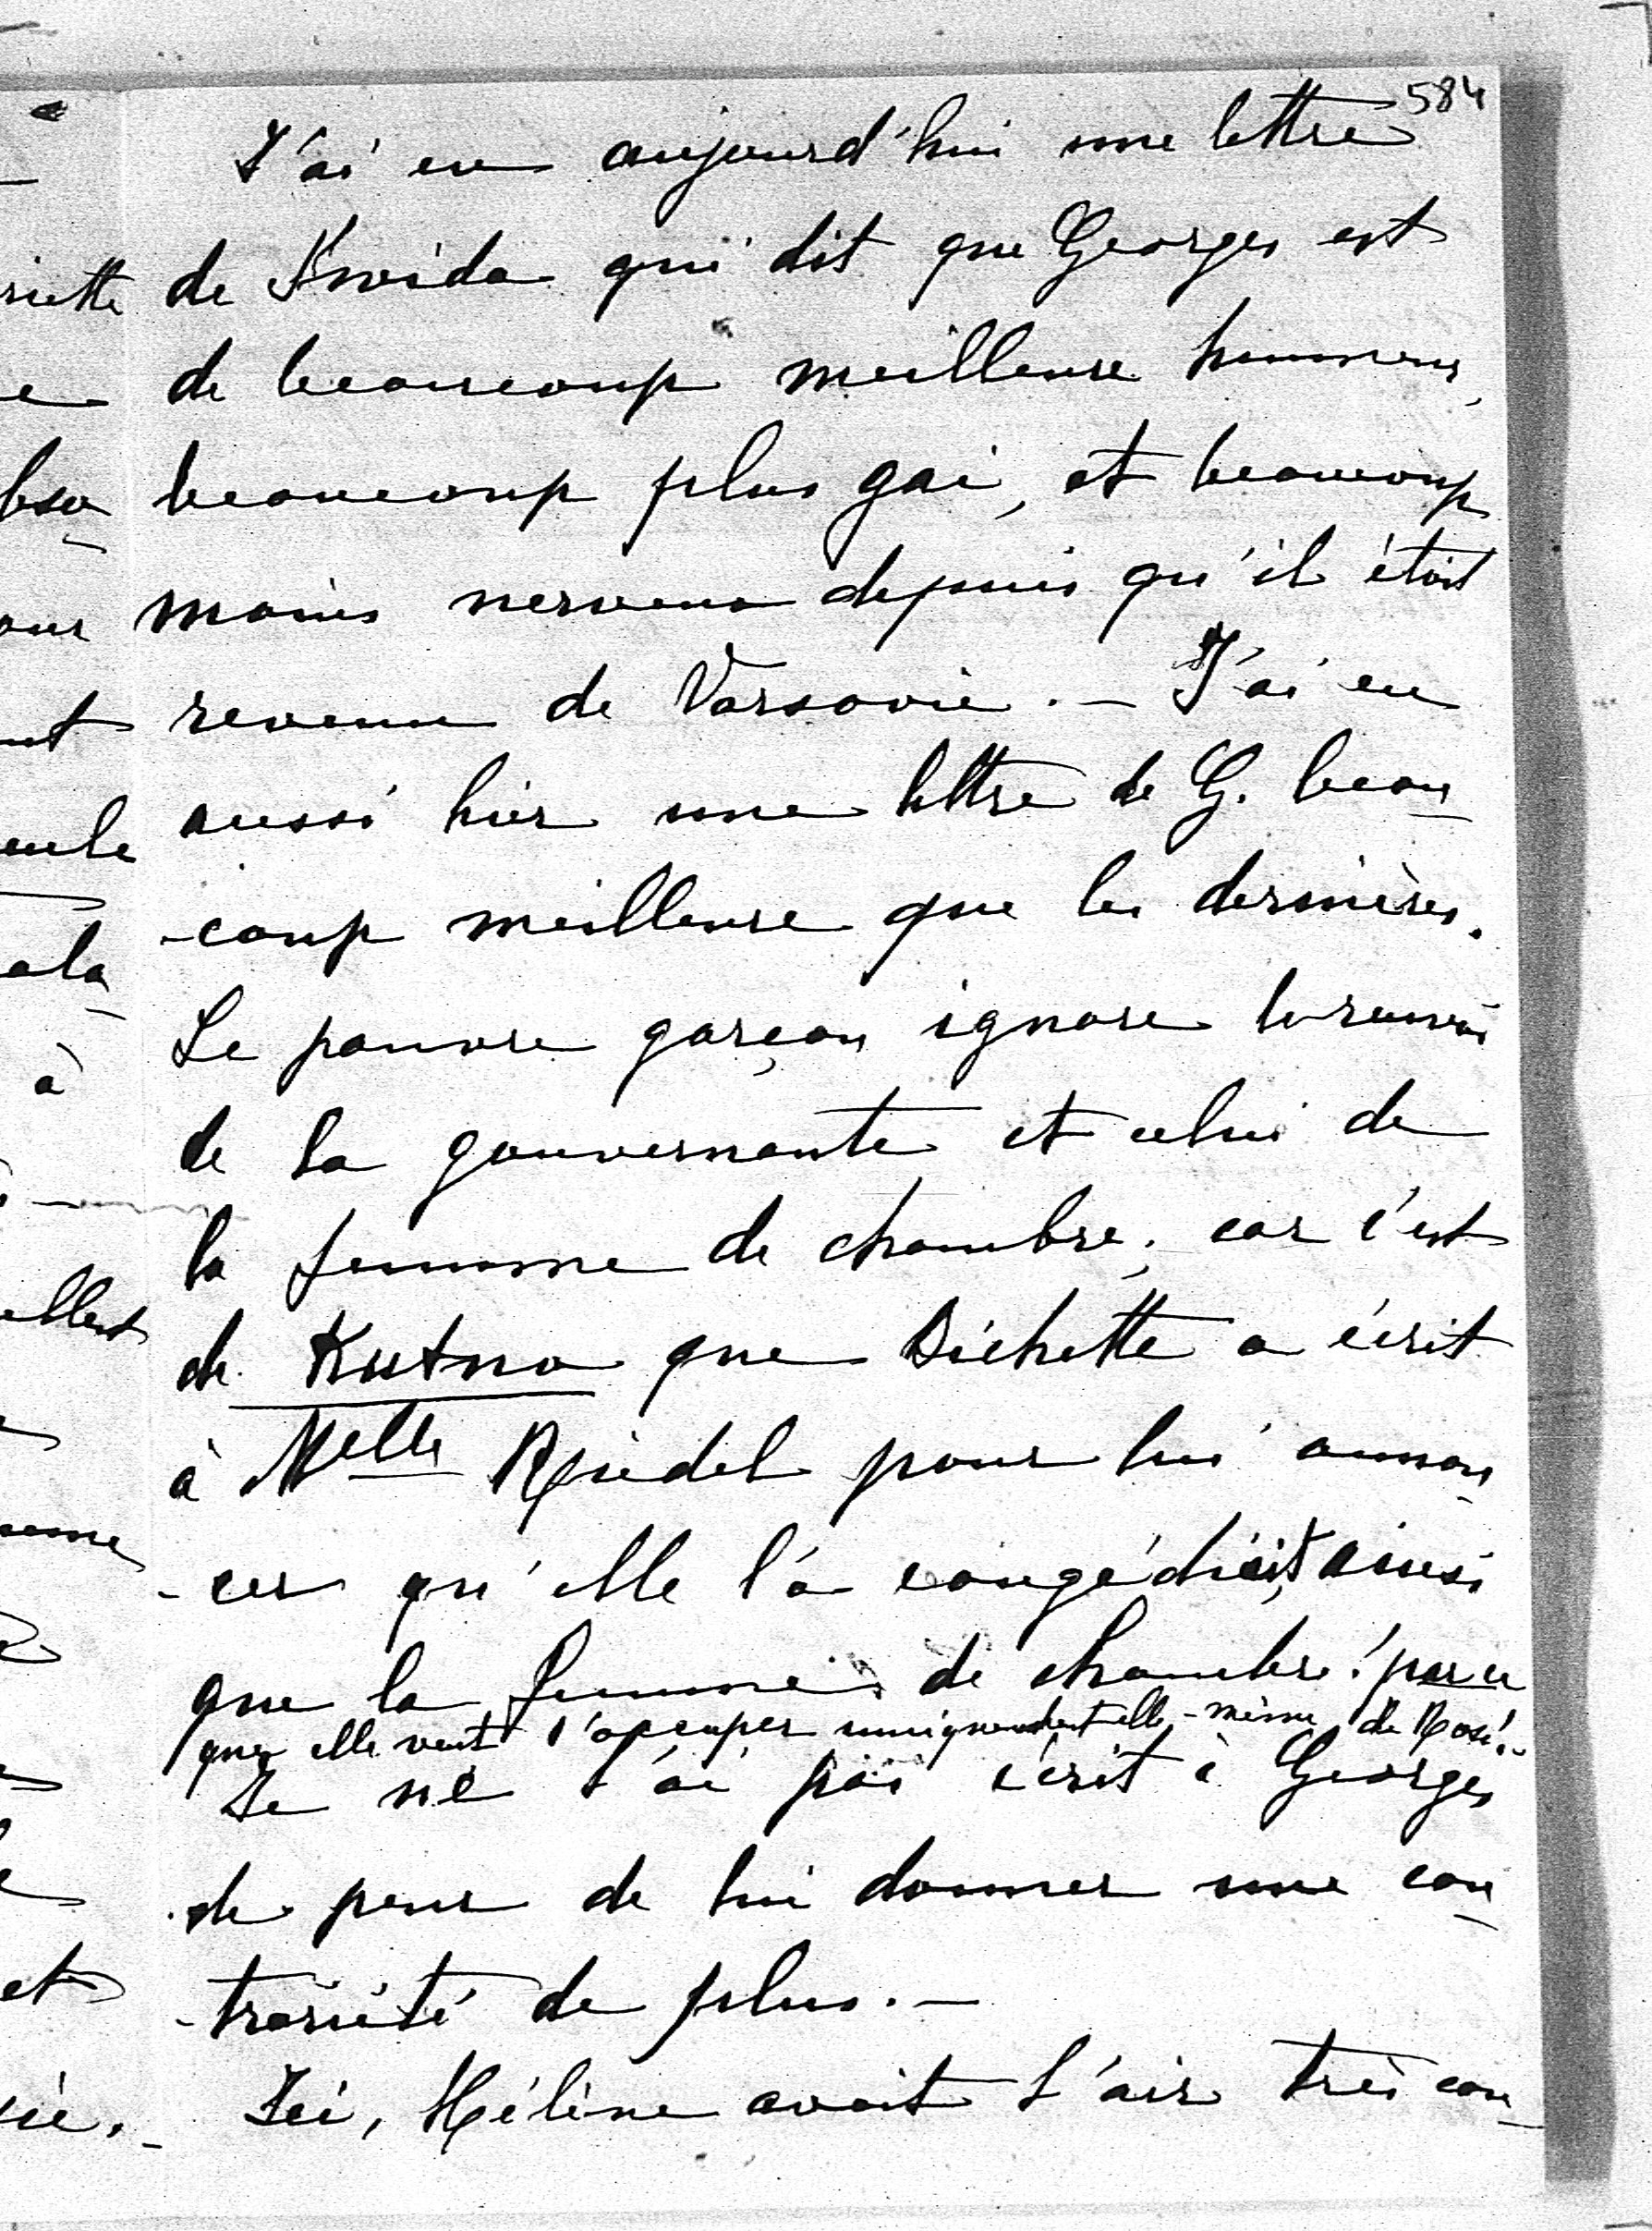 584
J'ai eu aujourd'hui une lettre
de Kwida qui dit que Georges est
de beaucoup meilleure humeur,
beaucoup plus gai, et beaucoup
moins nerveux depuis qu'il était
revenu de Varsovie. — J'ai eu
aussi hier une lettre de G. beau-
-coup meilleure que les dernières.
Le pauvre garçon ignore le renvoi
de la gouvernante et celui de
la femme de chambre; car c'est
de Kutno que Bichette a écrit
à Melle Riedel pour lui annon-
-cer qu'elle la congédiait, ainsi
que la femme de chambre! parce
que elle veut s'occuper uniquement elle-même de Rosi!-
Je ne l'ai pas écrit à Georges
de peur de lui donner une con-
-trariété de plus. —
Ici, Hélène avait l'air très con-
riette
e
our
nt
eule
ala-
à
ellent
et